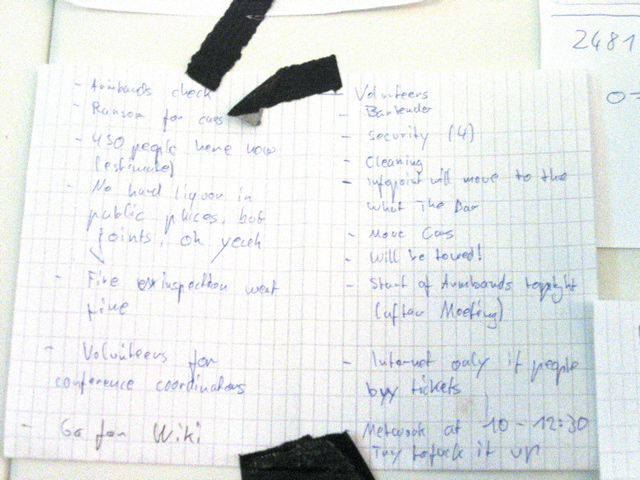 - Armbands check
- Ransom for cars
- 450 people here now
(estimate)
- No hard liquor in
public places, but
joints, oh yeah
- Fire inspection went
fine
- Volunteers for
conference coordinators
- Go for Wiki
- Volunteers
- Bartender
- Security (4)
- Cleaning
- Infopoint will move to the
What The Bar
- Move Cars
- Will be towed!
- Start of Armbands tonight
(after Meeting)
- Internet only if people
buy tickets
- Network at 10-12:30
Try to fuck it up
2481